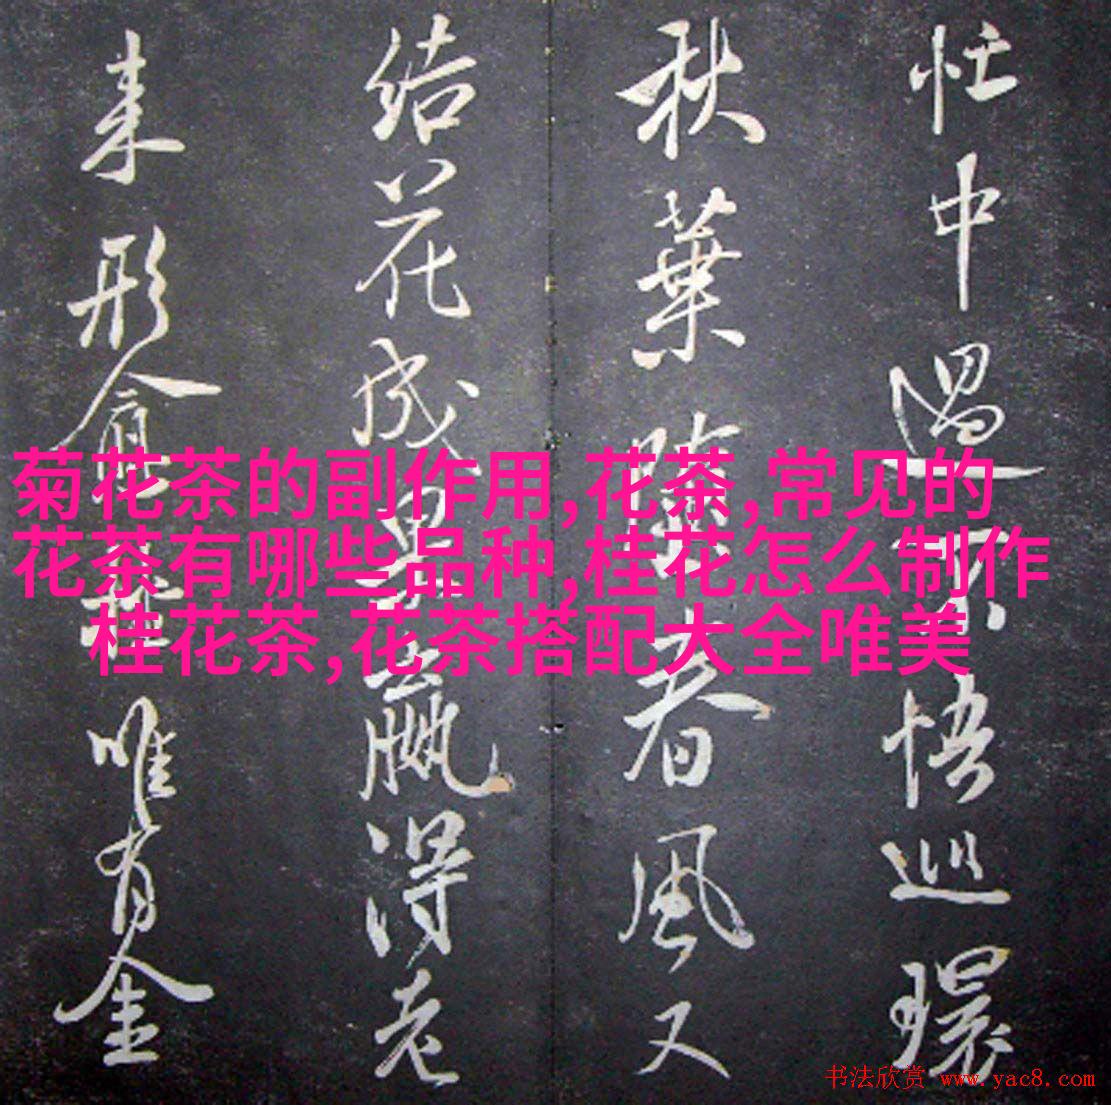 忙中過了悟巡環
秋葉隨春風又
结花成果羸得老
来形會唯有金
菊花茶的副作用,花茶,常见的
花茶有哪些品种,桂花怎么制作
桂花茶,花茶搭配大全唯美
书法欣赏 www.yac8.com